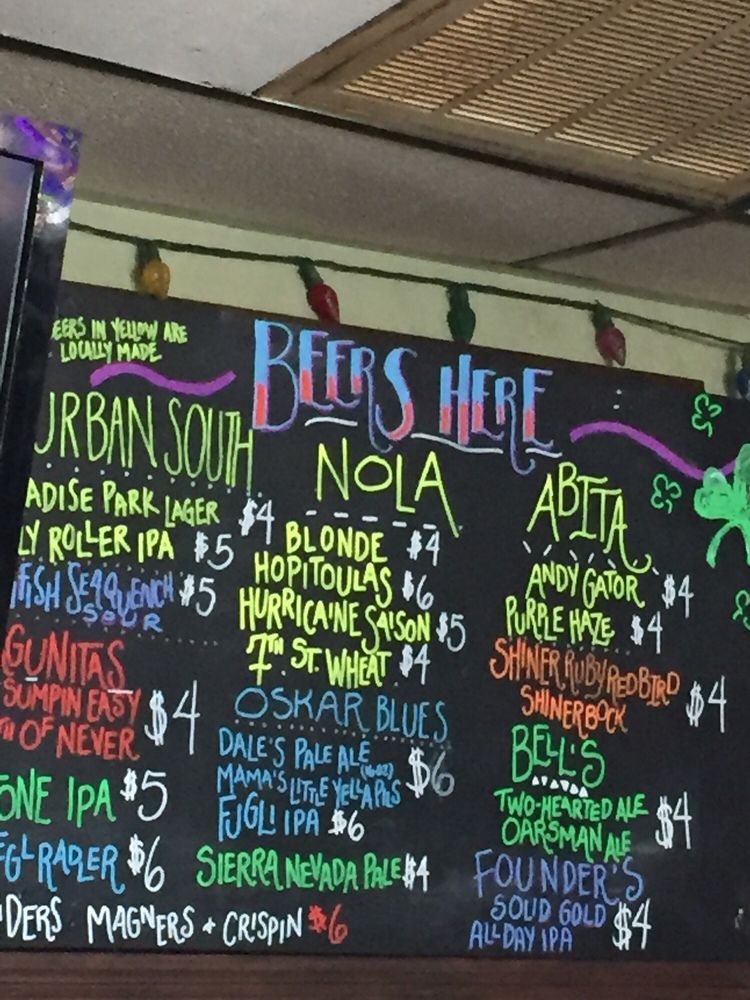 EERS IN YELLOW ARE
LOCALLY MADE
BEERS HERE
URBAN SOUTH
ADISE PARK LAGER $4
LY ROLLER IPA $5
FISH SEAQUENCH $5
SOUR
GUNITAS
SUMPIN EASY
OF NEVER $4
ONE IPA $5
FGL RADLER $6
DERS MAGNERS + CRISPIN $6
NOLA
BLONDE $4
HOPITOULAS $6
HURRICAINE SAISON $5
7TH ST. WHEAT $4
OSKAR BLUES
DALE'S PALE ALE
MAMA'S LITTLE YELLA PILS $6
FUGLI IPA $6
SIERRA NEVADA PALE $4
ABITA
ANDY GATOR $4
PURPLE HAZE $4
SHINER RUBY REDBIRD
SHINERBOCK $4
BELL'S
TWO-HEARTED ALE
OARSMAN ALE $4
FOUNDER'S
SOLID GOLD
ALL DAY IPA $4